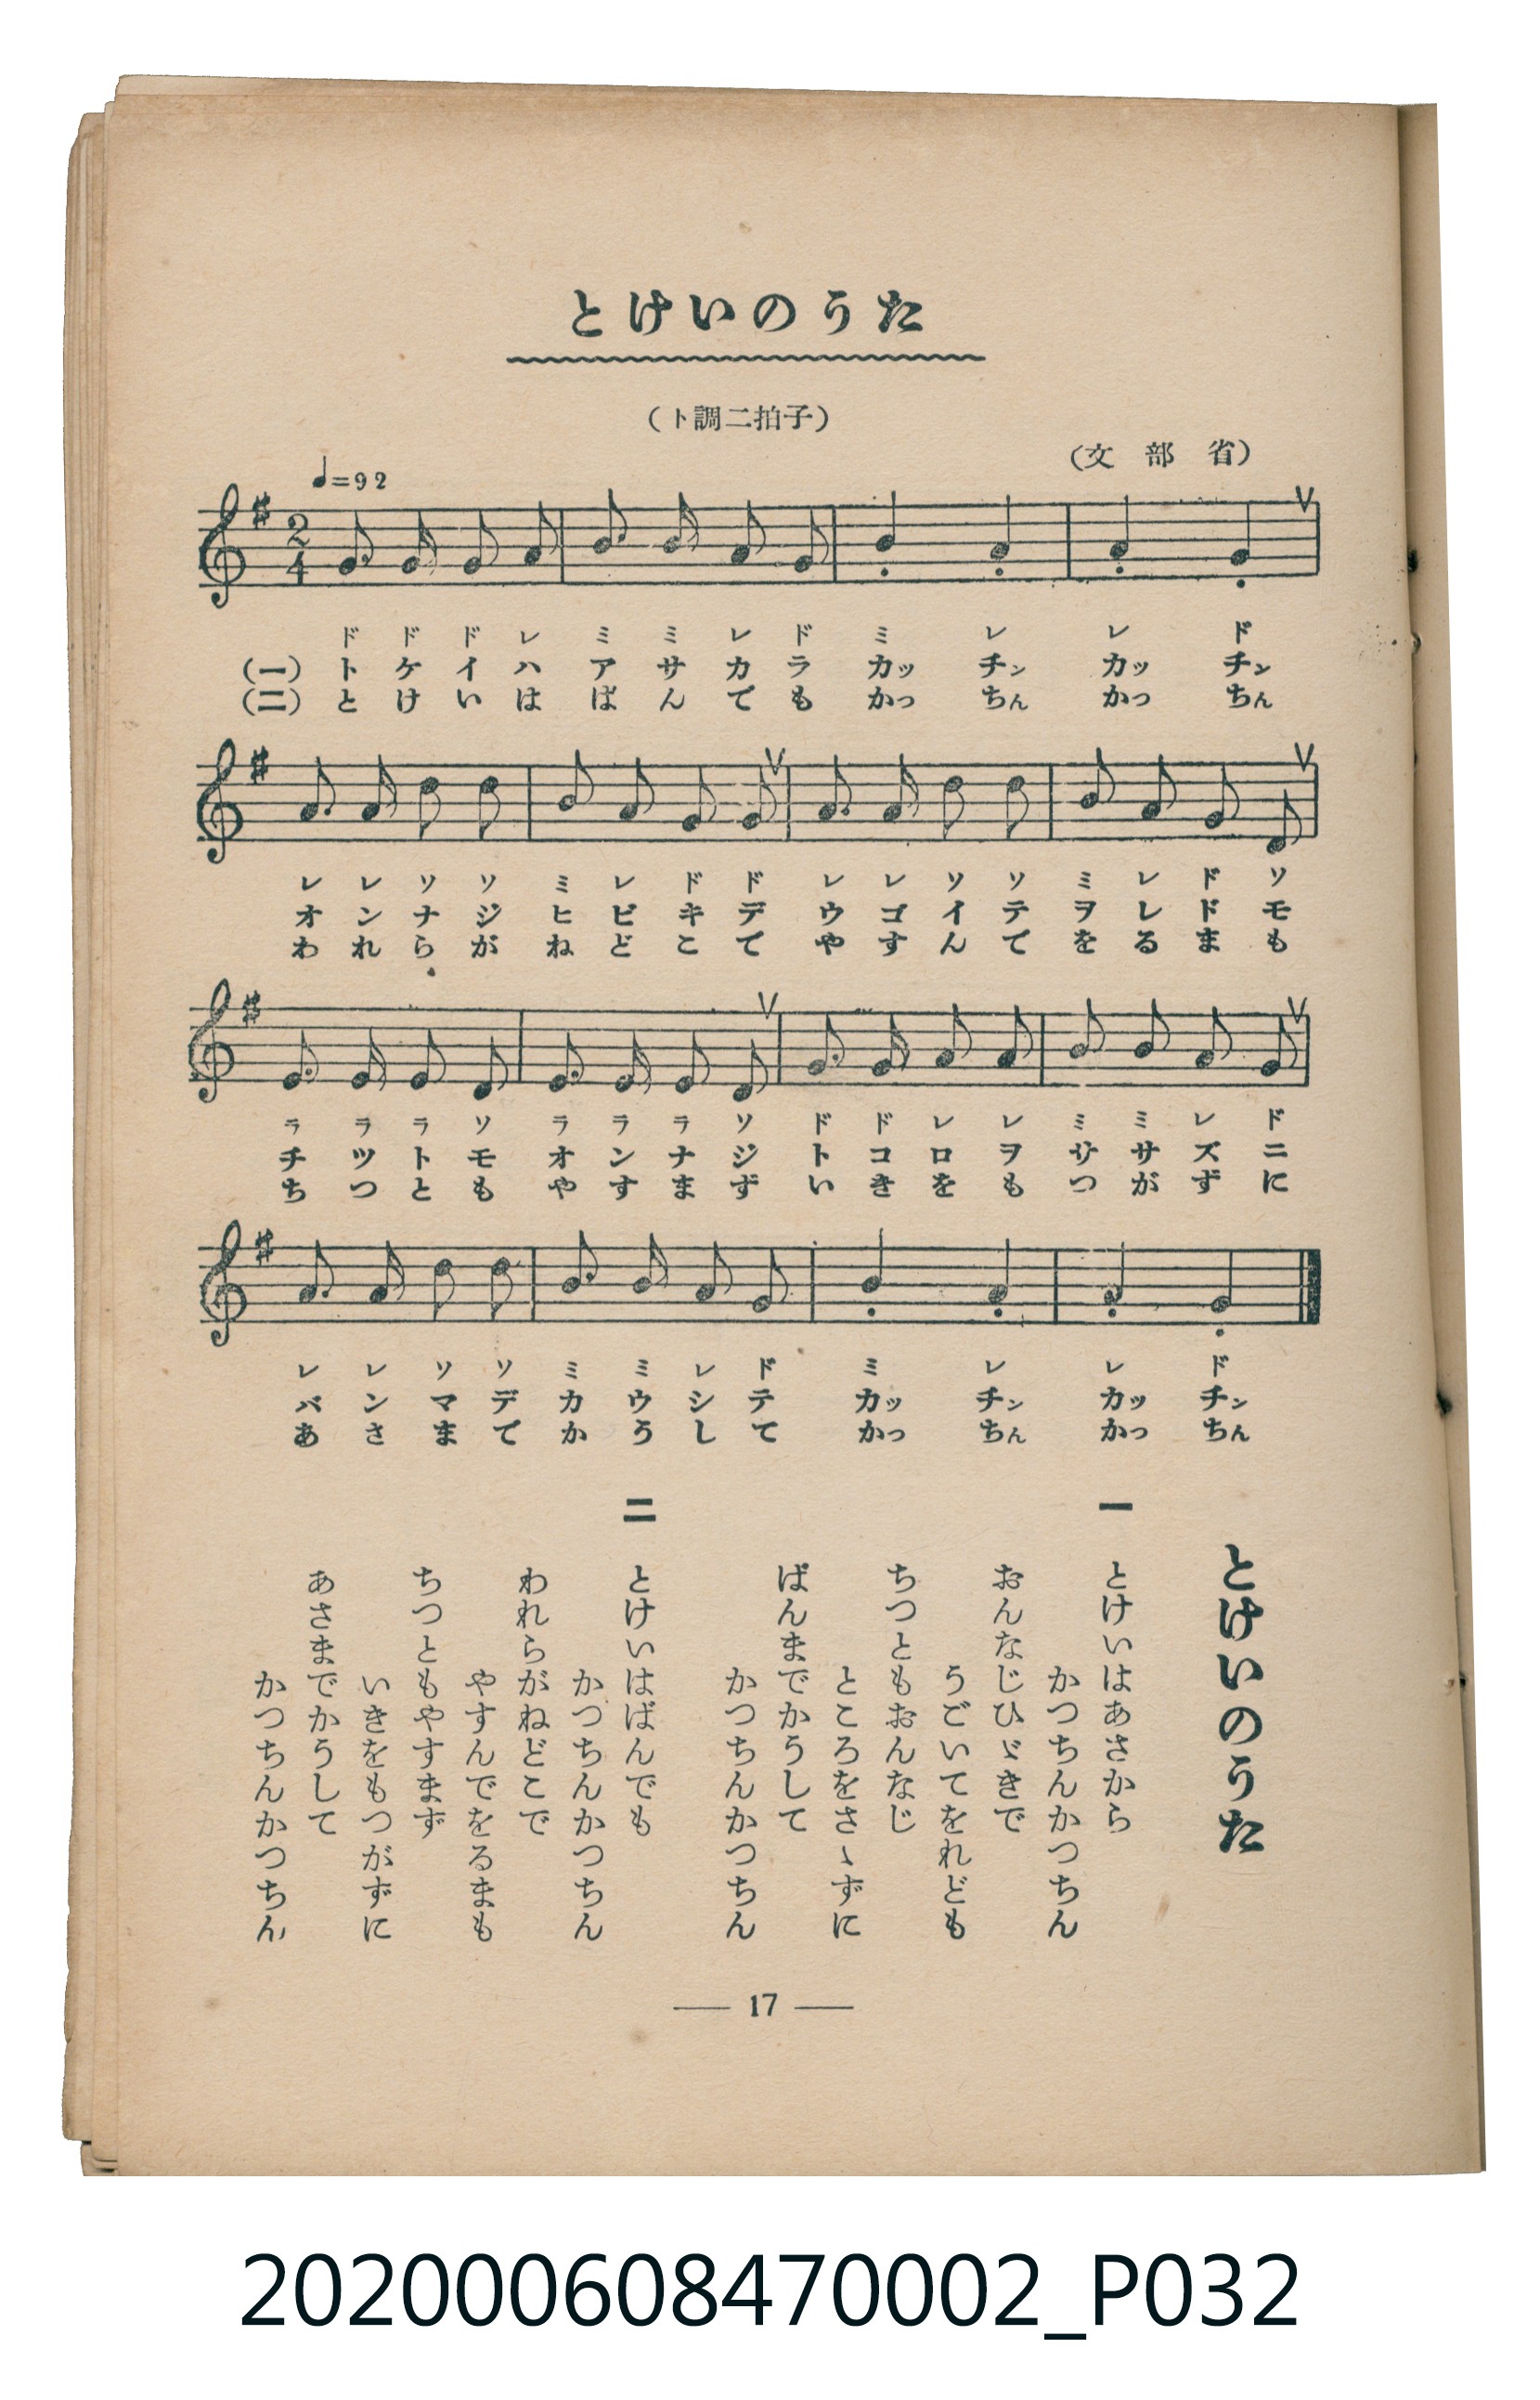 とけいのうた
(ト調二拍子)
(文部省)
♩=92
2/4
ド ド ド レ ミ ミ レ ド ミ レ レ ド
(一) ト ケ イ ハ ア サ カ ラ カッ チン カッ チン
(二) と け い は ば ん で も かっ ちん かっ ちん
レ レ ソ ソ ミ レ ド ド レ レ ソ ソ ミ レ ド ソ
オ ン ナ ジ ヒ ビ キ デ ウ ゴ イ テ ヲ レ ド モ
わ れ ら が ね ど こ で や す ん で を る ま も
ラ ラ ラ ソ ラ ラ ラ ソ ド ド レ レ ミ ミ レ ド
チ ツ ト モ オ ン ナ ジ ト コ ロ ヲ サ サ ズ ニ
ち つ と も や す ま ず い き を も つ が ず に
レ レ ソ ソ ミ ミ レ ド ミ レ レ ド
バ ン マ デ カ ウ シ テ カッ チン カッ チン
あ さ ま で か う し て かっ ちん かっ ちん
とけいのうた
一
とけいはあさから
かつちんかつちん
おんなじひゞきで
うごいてをれども
ちつともおんなじ
ところをさゝずに
ばんまでかうして
かつちんかつちん
二
とけいはばんでも
かつちんかつちん
われらがねどこで
やすんでをるまも
ちつともやすまず
いきをもつがずに
あさまでかうして
かつちんかつちん
— 17 —
202000608470002_P032